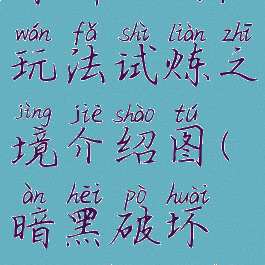 wán fǎ shì liàn zhī
玩法试炼之
jìng jiè shào tú
境介绍图(
àn hēi pò huài
暗黑破坏